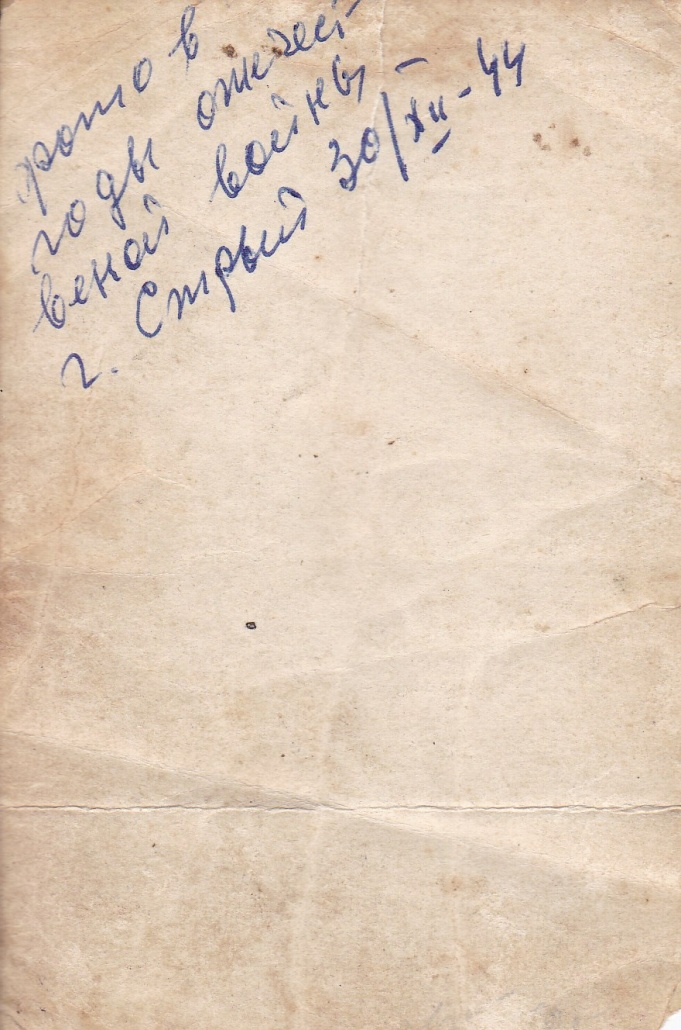 фото в
годы отечест
веной войны –
г. Стрый 30/XII-44